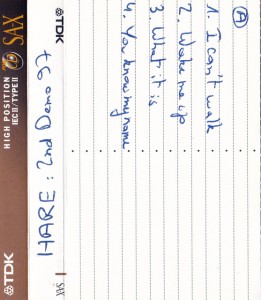 TDK SA-X
HIGH POSITION
IECII/TYPEII
TDK
TDK
HARE : 2nd Demo 97
SA-X
A
1. I can't walk
2. Wake me up
3. What it is
4. You know my name